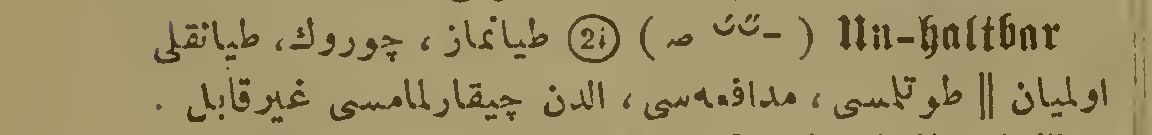 Un-haltbar ( -ُ◡◡ ص ) (2i) طيانماز ، چوروك، طيانقلى
اولميان || طوتلمسى ، مدافعه‌سى ، الدن چيقارلمامسى غيرقابل .